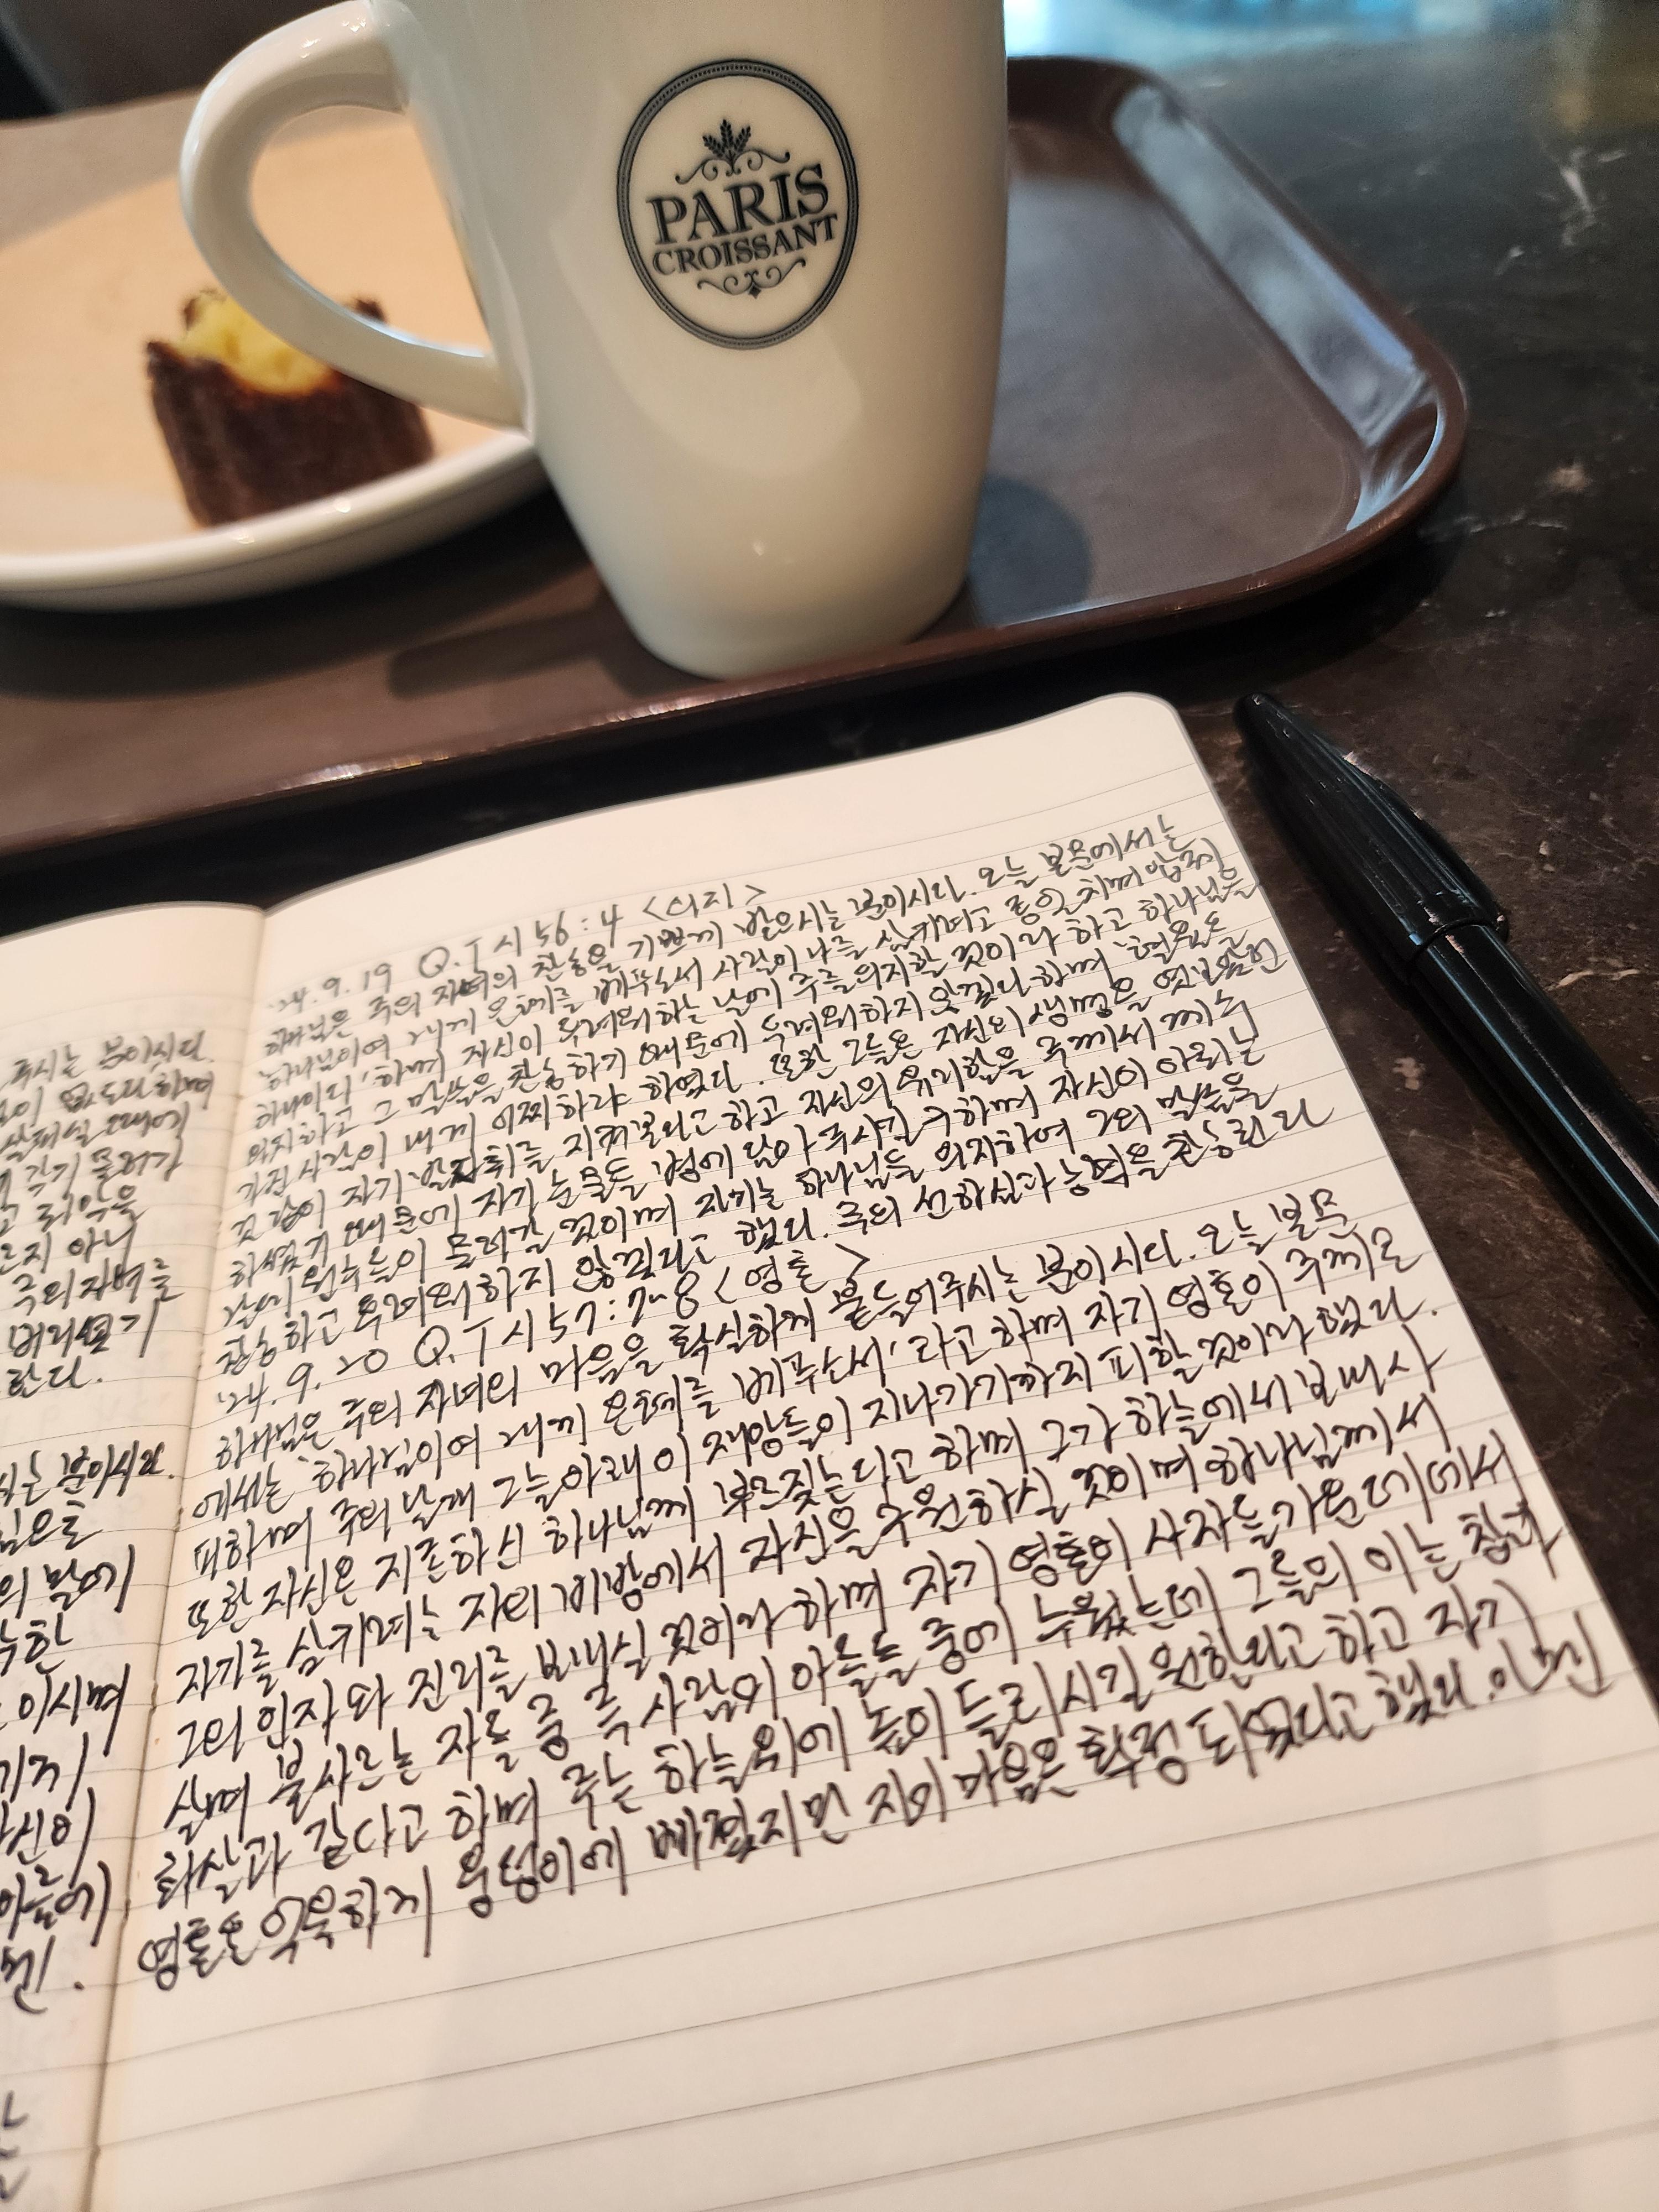 PARIS
CROISSANT
'24.9.19 Q.T 시 56:4 <의지>
하나님은 주의 자녀의 찬송을 기쁘게 받으시는 분이시다. 오늘 본문에서는
'하나님이여 내게 은혜를 베푸소서 사람이 나를 삼키려고 종일 치며 압제
하나이다' 하며 자신이 두려워하는 날에 주를 의지할 것이라 하고 하나님을
의지하고 그 말씀을 찬송하기 때문에 두려워하지 않겠다 하며 혈육을
가진 사람이 내게 어찌하랴 하였다. 또한 그들은 자신의 생명을 엿보았던
것 같이 자기 발자취를 지켜본다고 하고 자신의 유리함을 주께서 계수
하셨기 때문에 자기 눈물을 병에 담아 주시길 구하며 자신이 아뢰는
날에 원수들이 물러갈 것이며 자기는 하나님을 의지하여 그의 말씀을
찬송하고 두려워하지 않겠다고 했다. 주의 선하심과 능력을 찬송한다
'24.9.20 Q.T 시 57:7~8 <영혼>
하나님은 주의 자녀의 마음을 확실하게 붙들어주시는 분이시다. 오늘 본문
에서는 '하나님이여 내게 은혜를 베푸소서' 라고 하며 자기 영혼이 주께로
피하며 주의 날개 그늘 아래 이 재앙들이 지나가기까지 피할 것이라 했다.
또한 자신은 지존하신 하나님께 부르짖는다고 하며 그가 하늘에서 보내사
자기를 삼키려는 자의 비방에서 자신을 구원하실 것이며 하나님께서
그의 인자와 진리를 보내실 것이라 하며 자기 영혼이 사자들 가운데에서
살며 불사르는 자들 중 즉 사람의 아들들 중에 누웠는데 그들의 이는 창과
화살과 같다고 하며 주는 하늘 위에 높이 들리시길 원한다고 하고 자기
영혼은 억울하게 웅덩이에 빠졌지만 자기 마음은 확정 되었다고 했다. 아멘
주시는 분이시다.
없도다 하며
때에
각기 물러가
죄악을
아니
주의 자녀를
버리셨기
란다.
시는 분이시다.
힘으로
의 발에
이시며
자신이
아들에